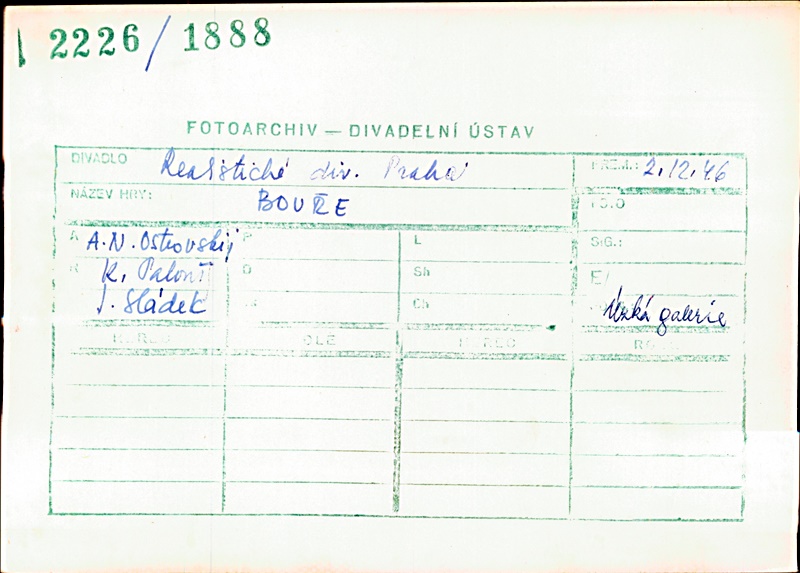 2226/1888
FOTOARCHIV — DIVADELNÍ ÚSTAV
DIVADLO Realistické div. Praha PREM.: 2.12.46
NÁZEV HRY: BOUŘE
A A.N. Ostrovskij P L SIG.:
R K. Palouš O Sh E/
J. Sládek Ch galerie
HEREC ROLE HEREC RO